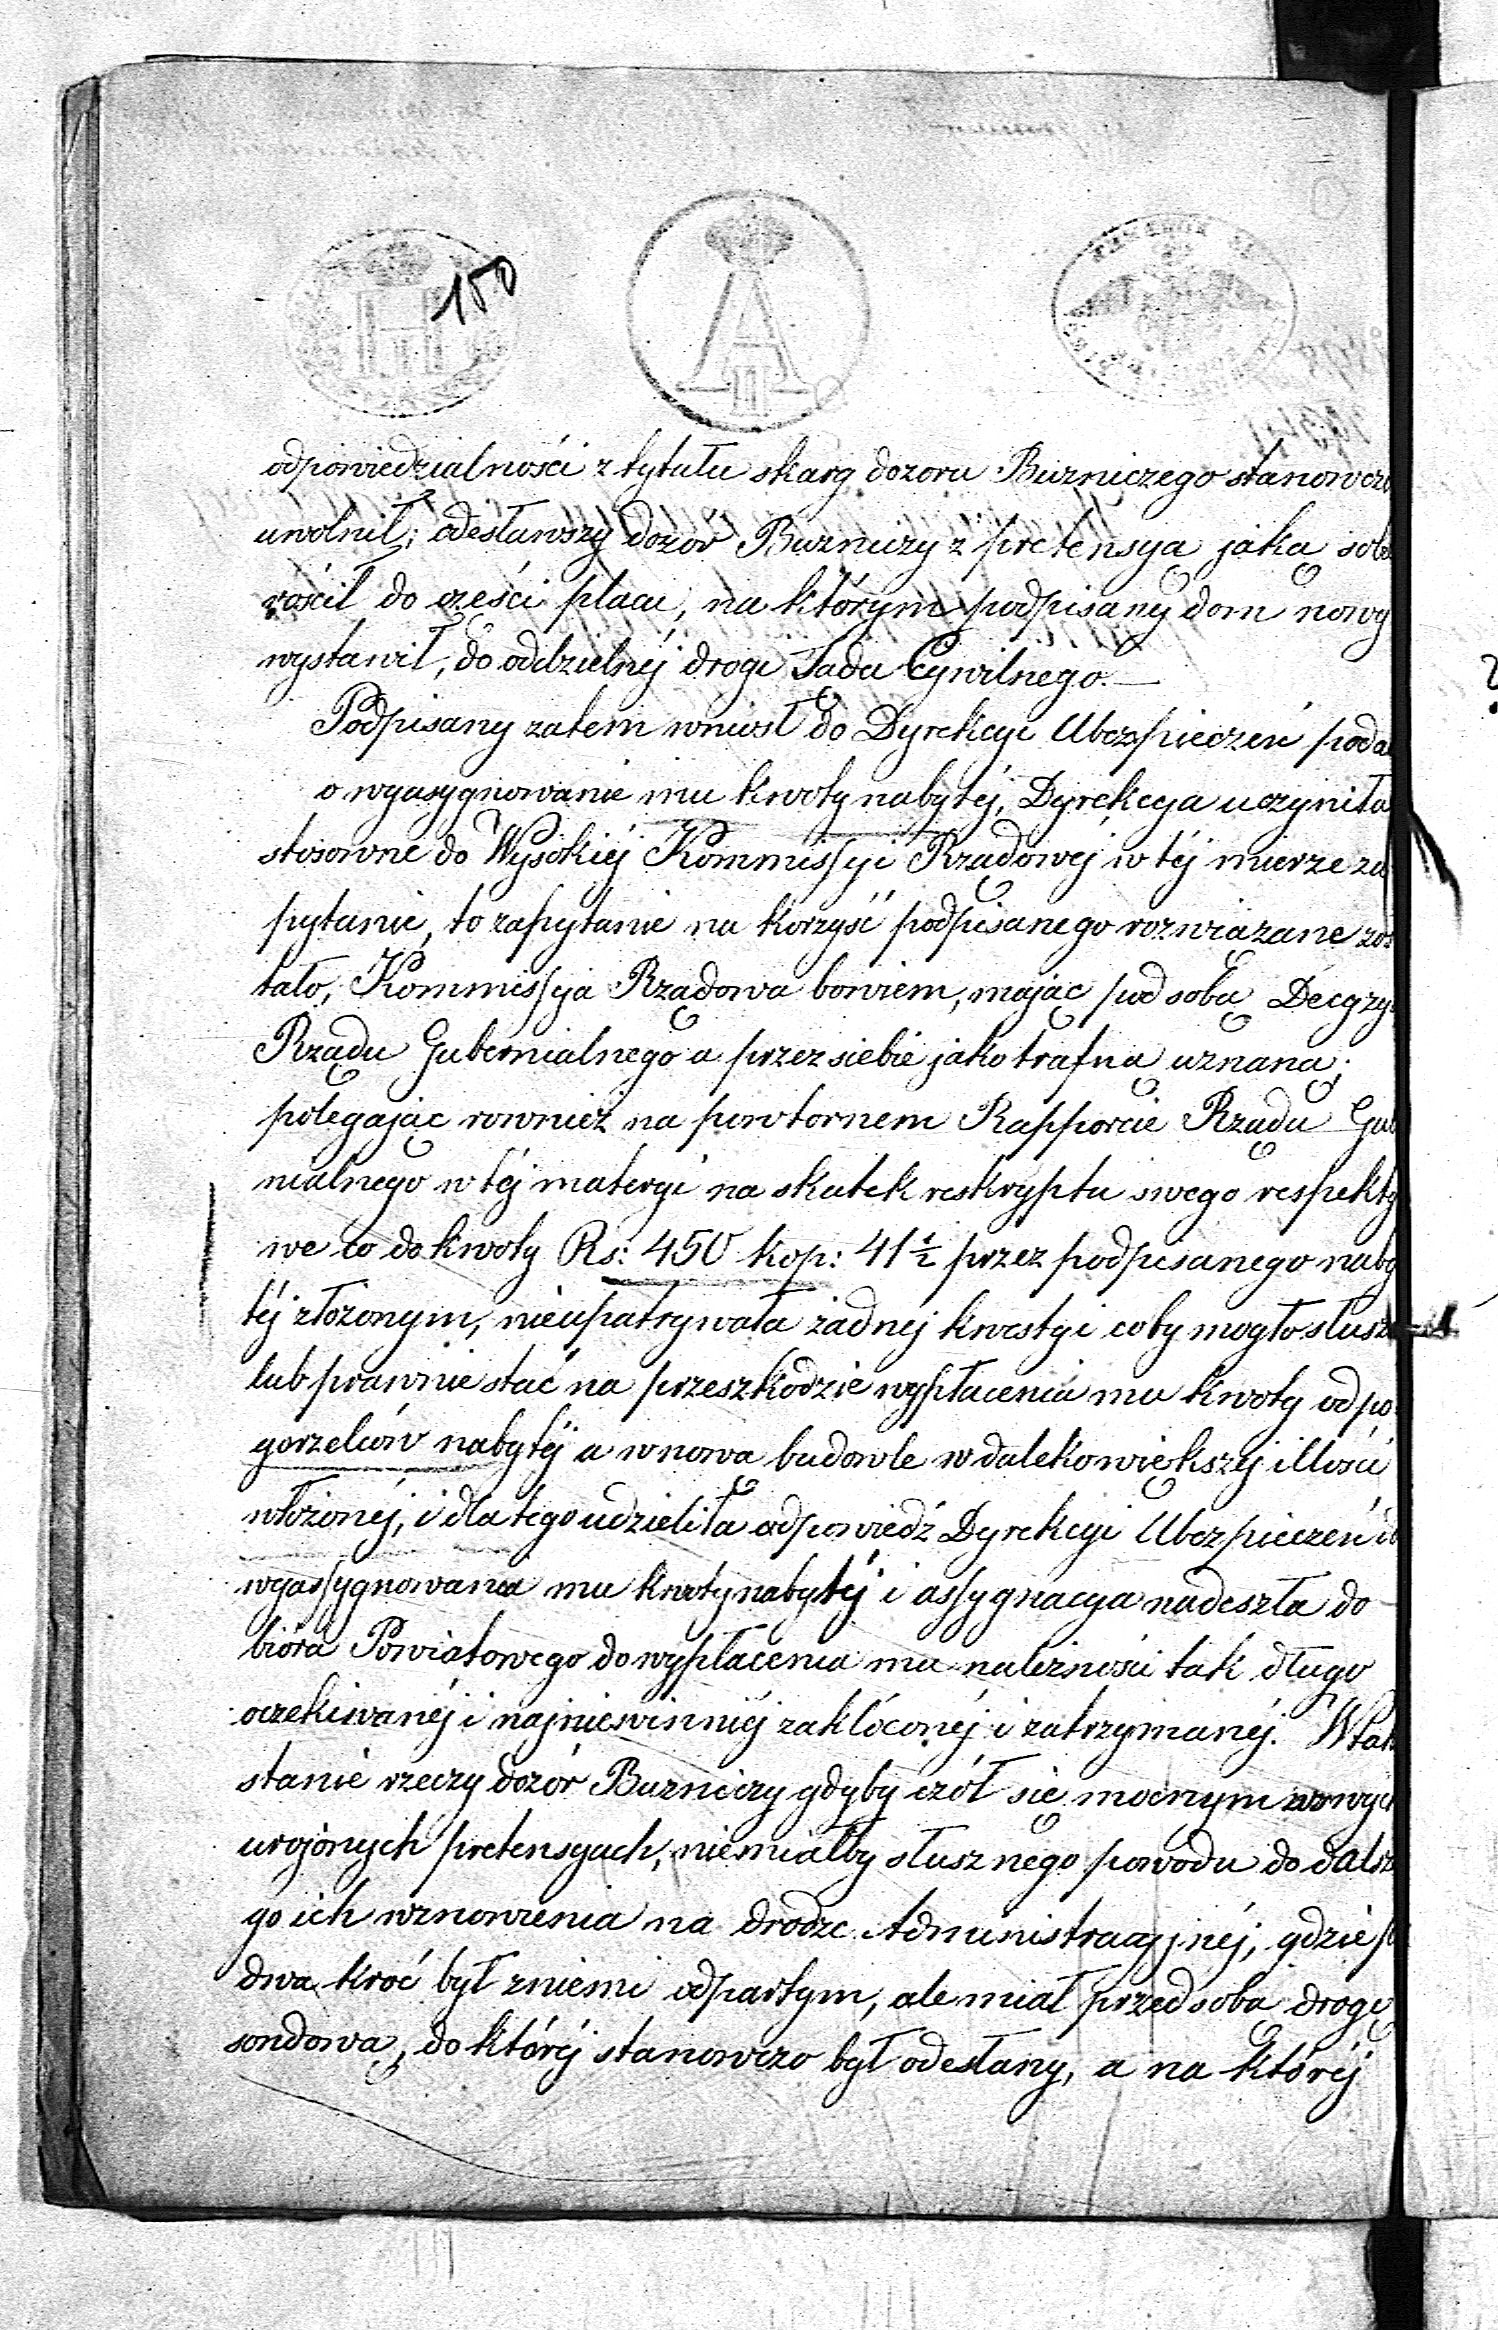 150
odpowiedzialności z tytułu skarg dozoru Buzniczego stanowczo
uwolnił; odesławszy dozór Buzniczy z pretensyą jaką sobie
rościł do części placu, na którym podpisany dom nowy
wystawił, do oddzielnéj drogi Sądu Cywilnego.—
Podpisany zatem wniosł do Dyrekcyi Ubezpieczeń poda
o wyasygnowanie mu kwoty nabytéj, Dyrekcya uczyniła
stosowne do Wysokiéj Kommissyi Rządowéj w téj mierze za
pytanie, to zapytanie na korzyść podpisanego rozwiązane zos
tało, Kommissyja Rządowa bowiem, mając pod sobą Decyzy
Rządu Gubernialnego a przez siebie jako trafną uznaną;
polegając rownież na powtornem Rapporcie Rządu Gub
nialnego w téj materyi na skutek reskryptu swego respekty
we co do kwoty Rs: 450 kop: 41½ przez podpisanego naby
téj złożonym, nieupatrywała żadnéj kwestyi coby mogło słusz
lub prawnie stać na przeszkodzie wypłacenia mu kwoty od po
gorzelców nabytéj a w nową budowle w daleko większéj illości
włożonéj, i dla tego udzieliła odpowiedź Dyrekcyi Ubezpieczeń
wyassygnowania mu kwoty nabytéj i assygnacya nadeszła do
bióra Powiatowego do wypłacenia mu należności tak długo
oczekiwanéj i najniewinniéj zakłóconéj i zatrzymanéj. W tak
stanie rzeczy dozór Buzniczy gdyby czół się mocnym w swych
urojonych pretensyach, niemiałby słusznego powodu do dalsze
go ich wznowienia na drodze Administracyjnéj, gdzie
dwa kroć był zniemi odpartym, ale miał przed sobą drogę
sondową, do któréj stanowczo był odesłany, a na któréj